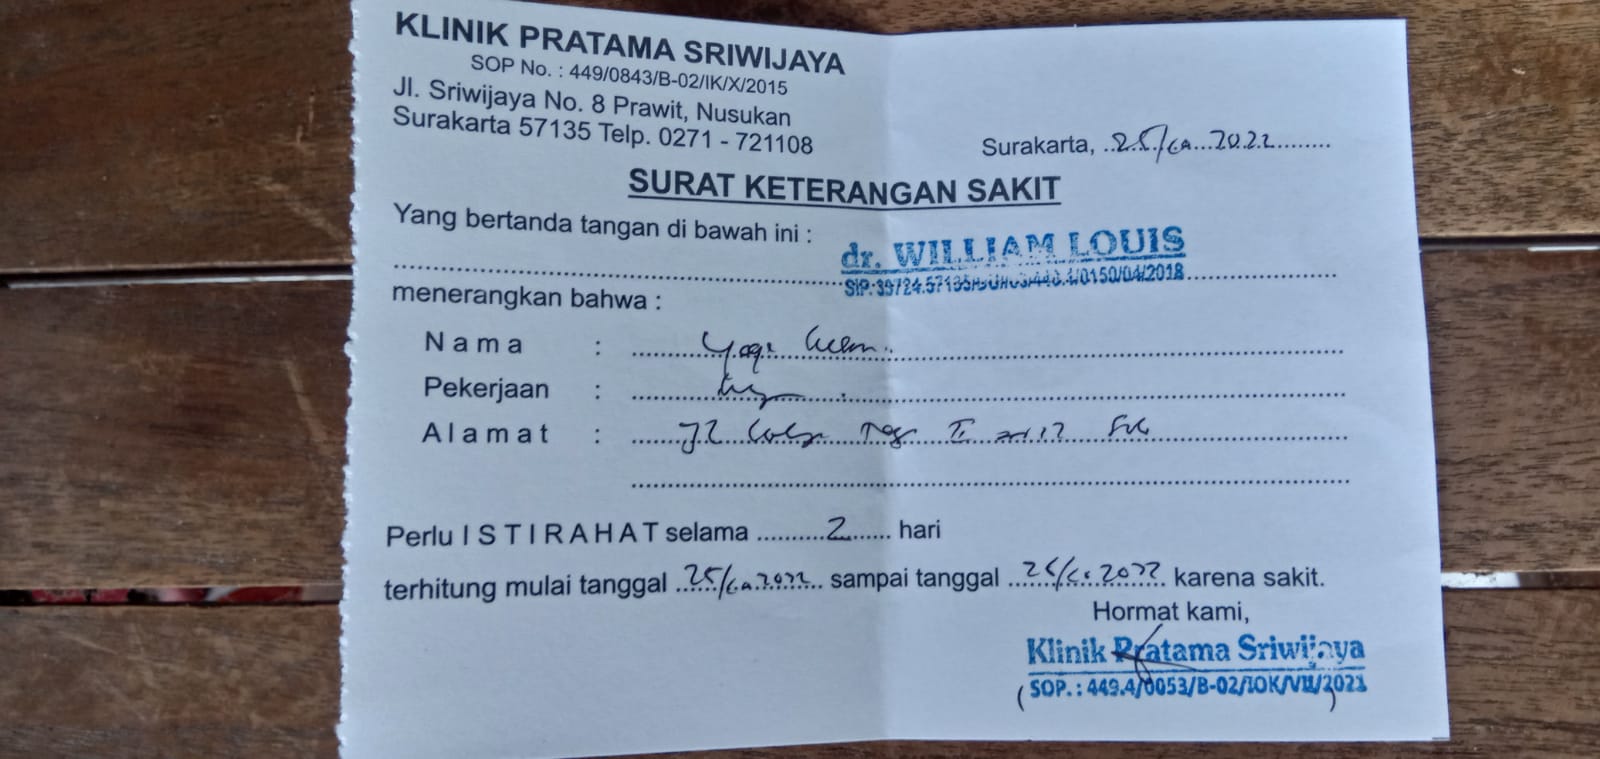 KLINIK PRATAMA SRIWIJAYA
SOP No. : 449/0843/B-02/IK/X/2015
Jl. Sriwijaya No. 8 Prawit, Nusukan
Surakarta 57135 Telp. 0271 - 721108
Surakarta, 25/ 2022
SURAT KETERANGAN SAKIT
Yang bertanda tangan di bawah ini :
dr. WILLIAM LOUIS
menerangkan bahwa :
Nama : Yogi
Pekerjaan :
Alamat : Jl II
Perlu ISTIRAHAT selama 2 hari
terhitung mulai tanggal 25/ 2022 sampai tanggal 2022 karena sakit.
Hormat kami,
Klinik Pratama Sriwijaya
(SOP.: 449.4/0053/B-02/IOK/VII/2021)